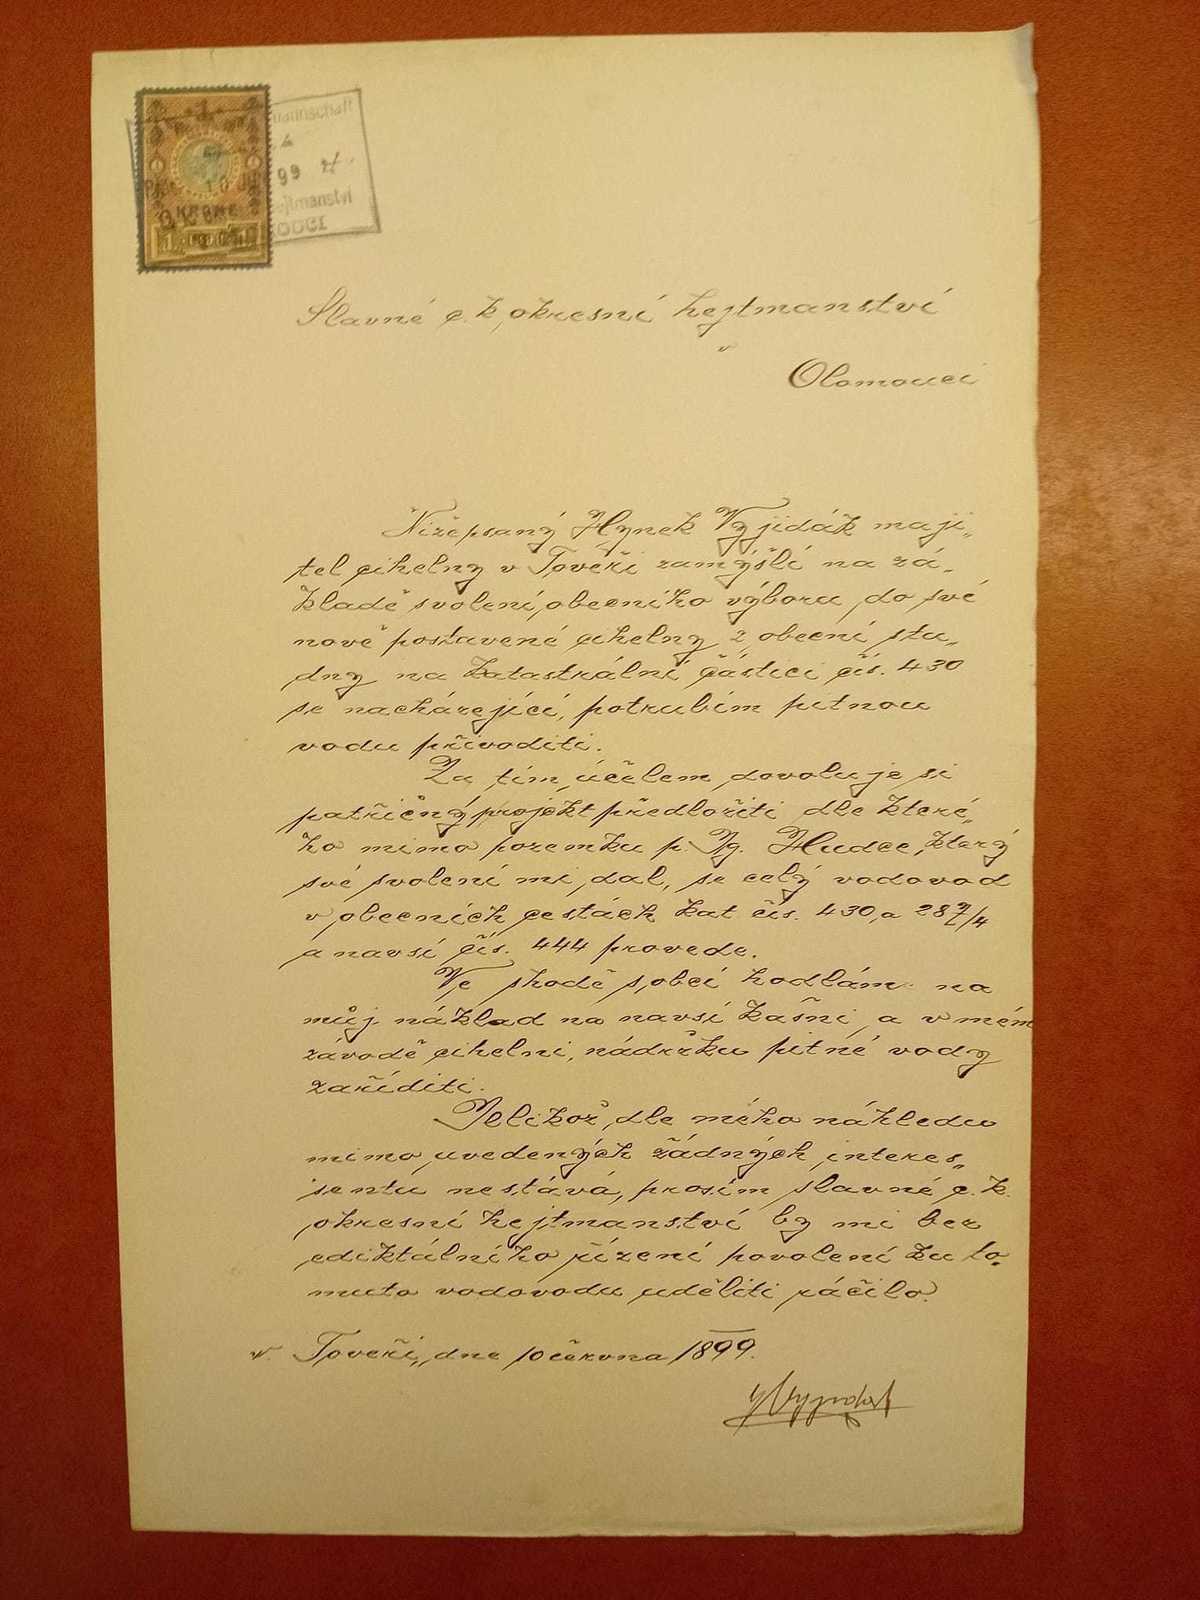 mannschaft
99
ejtmanství
1
KRONE
Slavné c. k. okresní hejtmanství
v
Olomouci
Nížepsaný Hynek Vyjidák maji„
tel cihelny v Tověři zamýšlí na zá„
kladě svolení obecního výboru do své
nově postavené cihelny z obecní stu„
dny na katastrální částici čís. 430
se nacházející, potrubím pitnou
vodu přivoditi.
Za tím účelem dovoluje si
patřičný projekt předložiti dle které„
ho mimo pozemku p. Ig. Hudce, který
své svolení mi dal, se celý vodovod
v obecních cestách kat čís. 430, a 287/4
a navsí čís. 444 provede.
Ve shodě s obcí hodlám na
můj náklad na navsí kašni a v mém
závodě cihelni, nádržku pitné vody
zaříditi.
Jelikož dle mého náhledu
mimo uvedených žádných interes„
sentu nestává, prosím slavné c. k.
okresní hejtmanství by mi bez
ediktálního řízení povolení ku to„
muto vodovodu uděliti ráčilo.
v. Tověři, dne 10 června 1899.
HVyjidak